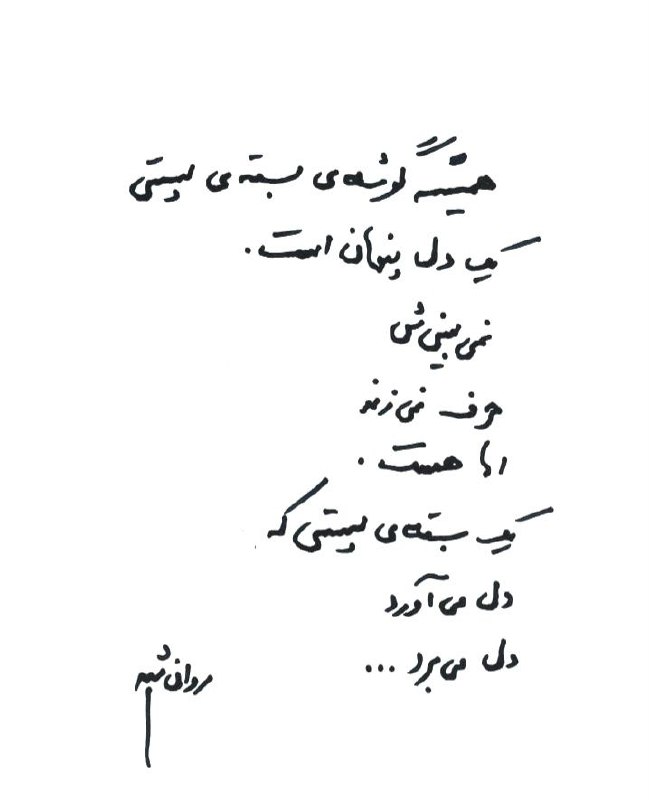 همیشه گوشه‌ی بسته‌ی پستی
یک دل پنهان است.
نمی بینی ش
حرف نمی زند
اما هست.
یک بسته‌ی پستی که
دل می آورد
دل می برد ...